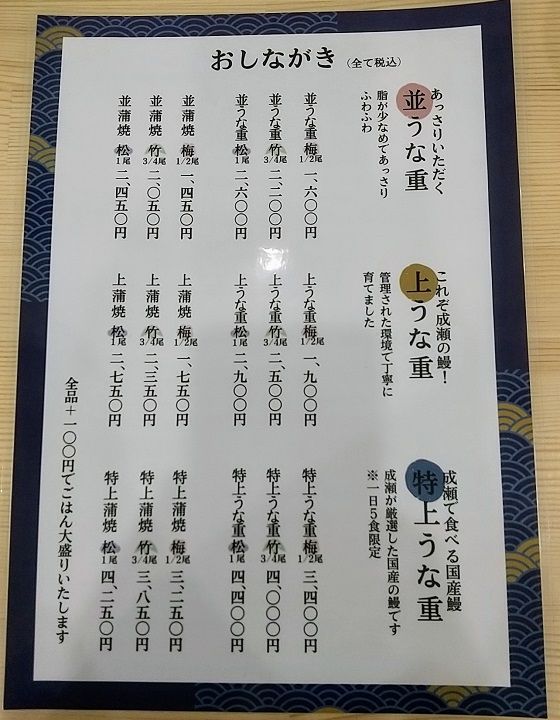 おしながき（全て税込）
あっさりいただく
並うな重
脂が少なめであっさり
ふわふわ
並うな重 梅 1/2尾 一、六〇〇円
並うな重 竹 3/4尾 二、二〇〇円
並うな重 松 1尾 二、六〇〇円
並蒲焼 梅 1/2尾 一、四五〇円
並蒲焼 竹 3/4尾 二、〇五〇円
並蒲焼 松 1尾 二、四五〇円
これぞ成瀬の鰻！
上うな重
管理された環境で丁寧に
育てました
上うな重 梅 1/2尾 一、九〇〇円
上うな重 竹 3/4尾 二、五〇〇円
上うな重 松 1尾 二、九〇〇円
上蒲焼 梅 1/2尾 一、七五〇円
上蒲焼 竹 3/4尾 二、三五〇円
上蒲焼 松 1尾 二、七五〇円
成瀬で食べる国産鰻
特上うな重
成瀬が厳選した国産の鰻です
※一日5食限定
特上うな重 梅 1/2尾 三、四〇〇円
特上うな重 竹 3/4尾 四、〇〇〇円
特上うな重 松 1尾 四、四〇〇円
特上蒲焼 梅 1/2尾 三、二五〇円
特上蒲焼 竹 3/4尾 三、八五〇円
特上蒲焼 松 1尾 四、二五〇円
全品＋一〇〇円でごはん大盛りいたします